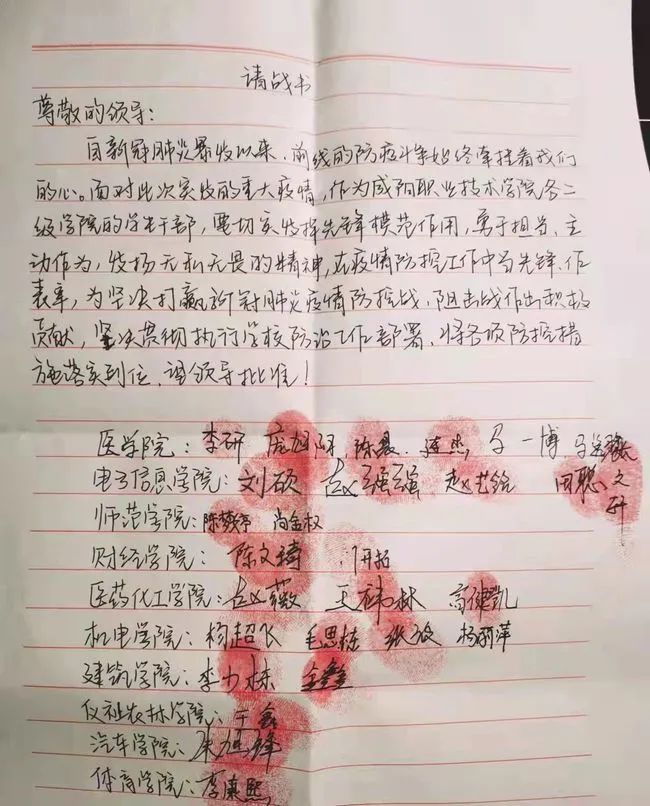 请战书
尊敬的领导:
自新冠肺炎暴发以来,前线的防疫斗争始终牵挂着我们
的心。面对此次突发的重大疫情,作为咸阳职业技术学院各二
级学院的学生干部,要切实发挥先锋模范作用,勇于担当、主
动作为,发扬无私无畏的精神,在疫情防控工作中当先锋、作
表率,为坚决打赢新冠肺炎疫情防控战、阻击战作出积极
贡献,坚决贯彻执行学校防治工作部署,将各项防控措
施落实到位,请领导批准!
医学院:李研 庞旭阳 陈 一博
电子信息学院:刘硕 赵强强 赵 田聪文
师范学院:陈梦婷 尚金权
财经学院:陈文琦 开拓
医药化工学院:赵薇 王祎林 高健凯
机电学院:杨超飞 毛思栋 张 杨丽萍
建筑学院:李力栋 鑫
仪祉农林学院:鑫
汽车学院:朱旭锋
体育学院:李康熙